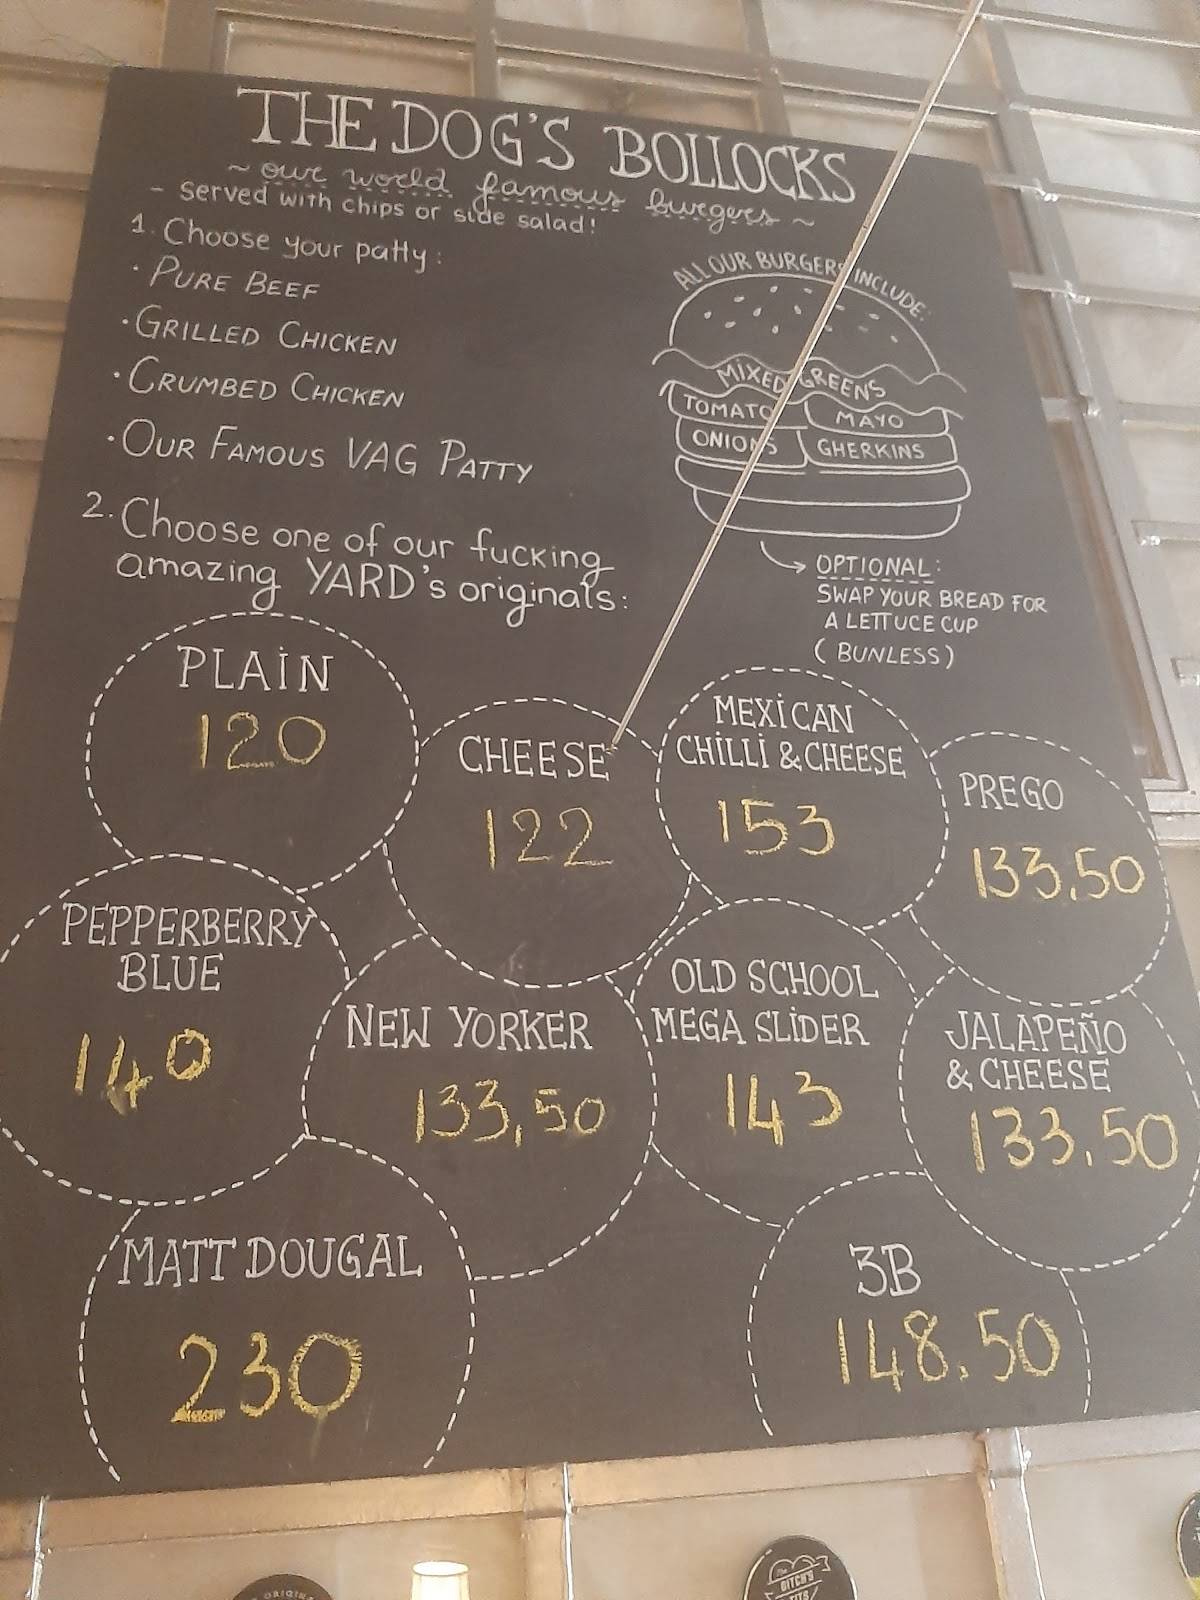 THE DOG'S BOLLOCKS
~ our world famous burgers ~
- served with chips or side salad!
1. Choose your patty:
· PURE BEEF
· GRILLED CHICKEN
· CRUMBED CHICKEN
· OUR FAMOUS VAG PATTY
ALL OUR BURGERS INCLUDE:
MIXED GREENS
TOMATO MAYO
ONIONS GHERKINS
OPTIONAL:
SWAP YOUR BREAD FOR
A LETTUCE CUP
(BUNLESS)
2. Choose one of our fucking
amazing YARD's originals:
PLAIN
120
CHEESE
122
MEXICAN
CHILLI & CHEESE
153
PREGO
133.50
PEPPERBERRY
BLUE
140
NEW YORKER
133,50
OLD SCHOOL
MEGA SLIDER
143
JALAPEÑO
& CHEESE
133.50
MATT DOUGAL
230
3B
148.50
ORIGINA
The
BITCH'S
TITS